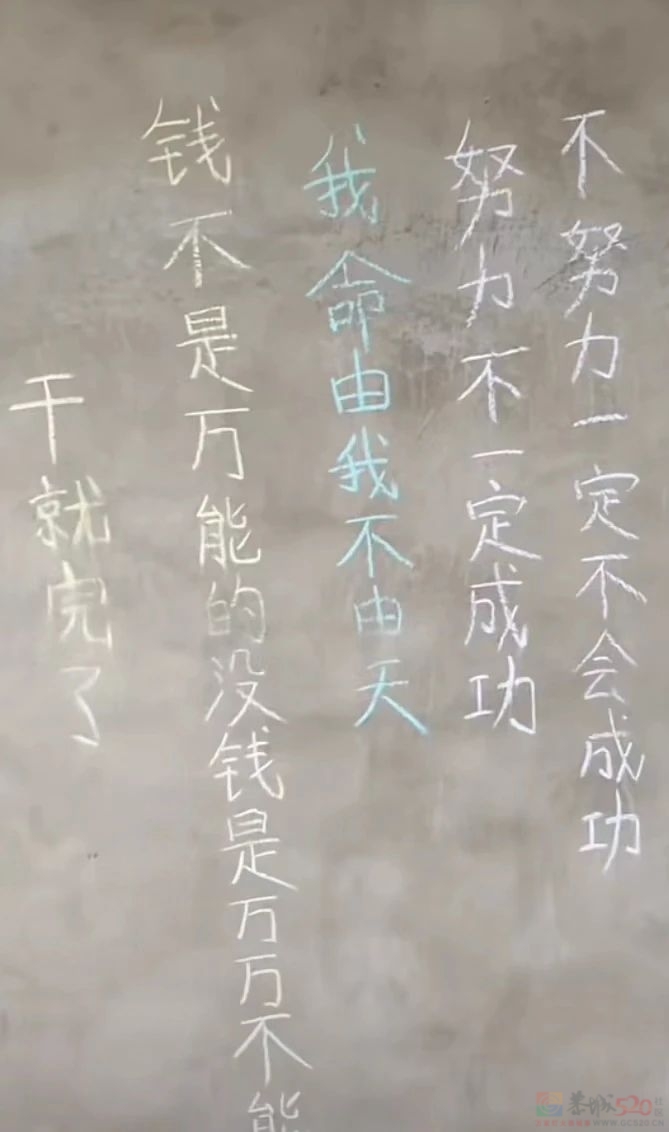 不努力一定不会成功
努力不一定成功
我命由我不由天
钱不是万能的没钱是万万不能
干就完了
恭城520社区
WWW.GC520.CN